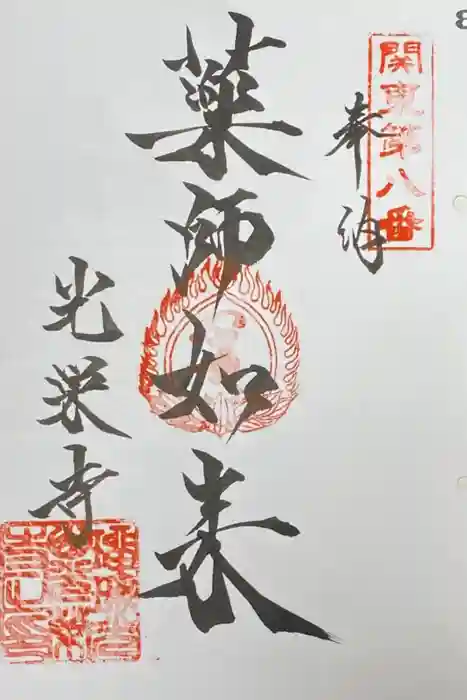 関東第八番
奉拝
薬師如来
光栄寺